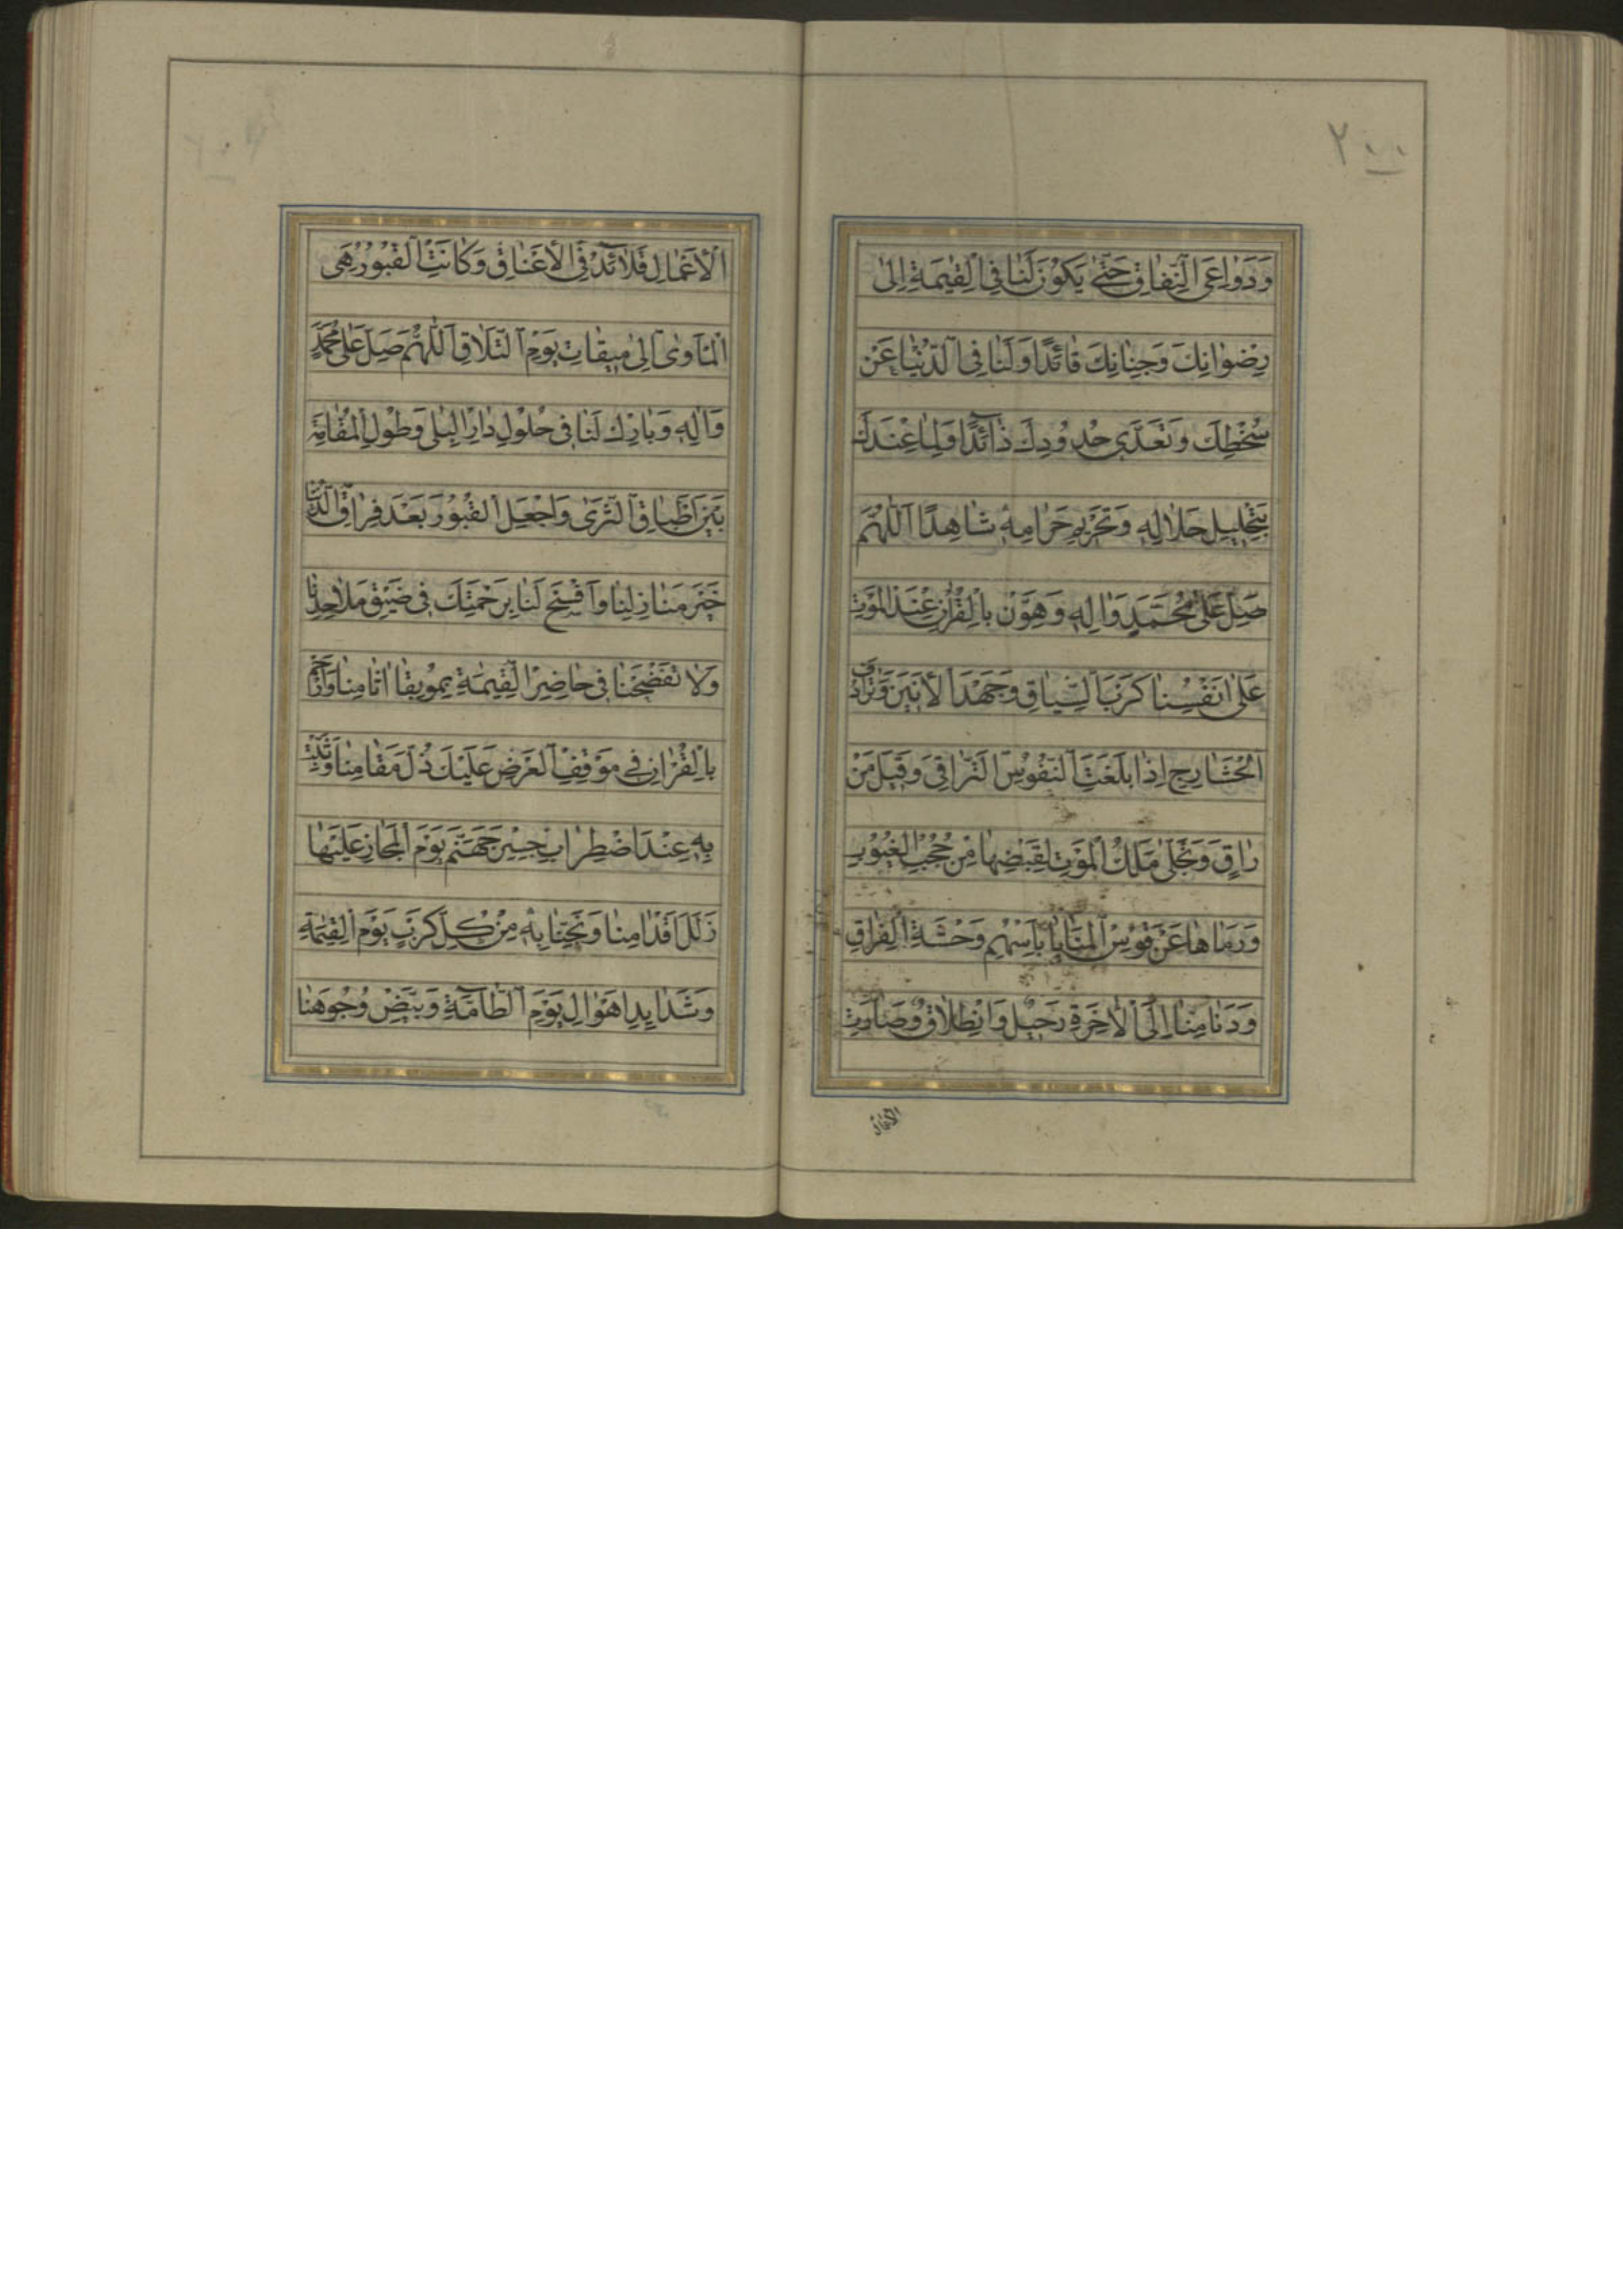 ٢٠٠
وَدَوَاعِيَ النِّفَاقِ حَتّىٰ يَكُونَ لَنَا فِي الْقِيٰمَةِ اِلىٰ
رِضْوَانِكَ وَجِنَانِكَ قَائِدًا وَلَنَا فِي الدُّنْيَا عَنْ
سُخْطِكَ وَتَعَدّي حُدُودِكَ ذَائِدًا وَلِمَا عِنْدَكَ
بِتَحْلِيلِ حَلَالِهِ وَتَحْرِيمِ حَرَامِهِ شَاهِدًا اَللّٰهُمَّ
صَلِّ عَلىٰ مُحَمَّدٍ وَاٰلِهِ وَهَوِّنْ بِالْقُرْاٰنِ عِنْدَ الْمَوْتِ
عَلىٰ اَنْفُسِنَا كَرْبَ السِّيَاقِ وَجَهْدَ الْاَنِينِ وَتَرَادُفَ
الْحَشَارِجِ اِذَا بَلَغَتِ النُّفُوسُ التَّرَاقِيَ وَقِيلَ مَنْ
رَاقٍ وَتَجَلّىٰ مَلَكُ الْمَوْتِ لِقَبْضِهَا مِنْ حُجُبِ الْغُيُوبِ
وَرَمَاهَا عَنْ قَوْسِ الْمَنَايَا بِاَسْهُمِ وَحْشَةِ الْفِرَاقِ
وَدَنَا مِنَّا اِلَى الْاٰخِرَةِ رَحِيلٌ وَانْطِلَاقٌ وَصَارَتِ
الْاَعْمَالُ
الْاَعْمَالُ قَلَائِدَ فِي الْاَعْنَاقِ وَكَانَتِ الْقُبُورُ هِيَ
الْمَأْوىٰ اِلىٰ مِيقَاتِ يَوْمِ التَّلَاقِ اَللّٰهُمَّ صَلِّ عَلىٰ مُحَمَّدٍ
وَاٰلِهِ وَبَارِكْ لَنَا فِي حُلُولِ دَارِ الْبِلىٰ وَطُولِ الْمُقَامَةِ
بَيْنَ اَطْبَاقِ الثَّرىٰ وَاجْعَلِ الْقُبُورَ بَعْدَ فِرَاقِ الدُّنْيَا
خَيْرَ مَنَازِلِنَا وَافْسَحْ لَنَا بِرَحْمَتِكَ فِي ضِيقِ مَلَاحِدِنَا
وَلَا تَفْضَحْنَا فِي حَاضِرِ الْقِيٰمَةِ بِمُوبِقَاتِ اٰثَامِنَا وَارْحَمْ
بِالْقُرْاٰنِ فِي مَوْقِفِ الْعَرْضِ عَلَيْكَ ذُلَّ مَقَامِنَا وَثَبِّتْ
بِهِ عِنْدَ اضْطِرَابِ جِسْرِ جَهَنَّمَ يَوْمَ الْمَجَازِ عَلَيْهَا
زَلَلَ اَقْدَامِنَا وَنَجِّنَا بِهِ مِنْ كُلِّ كَرْبٍ يَوْمَ الْقِيٰمَةِ
وَشَدَايِدِ اَهْوَالِ يَوْمِ الطَّامَّةِ وَبَيِّضْ وُجُوهَنَا